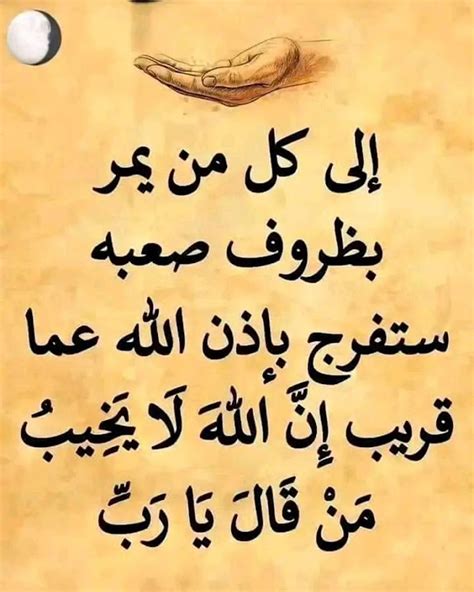 إلى كل من يمر
بظروف صعبه
ستفرج بإذن الله عما
قريب إِنَّ اللهَ لَا يَخِيبُ
مَنْ قَالَ يَا رَبِّ